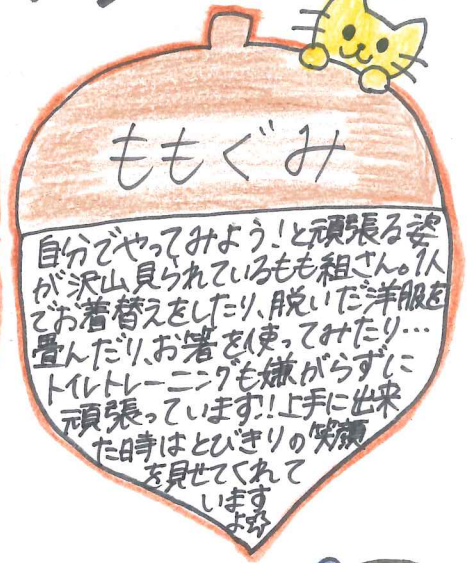 ももぐみ
自分でやってみよう!と頑張る姿
が沢山見られているもも組さん。1人
でお着替えをしたり、脱いだ洋服を
畳んだり、お箸を使ってみたり…
トイレトレーニングも嫌がらずに
頑張っています!!上手に出来
た時はとびきりの笑顔
を見せてくれて
います
よ☆